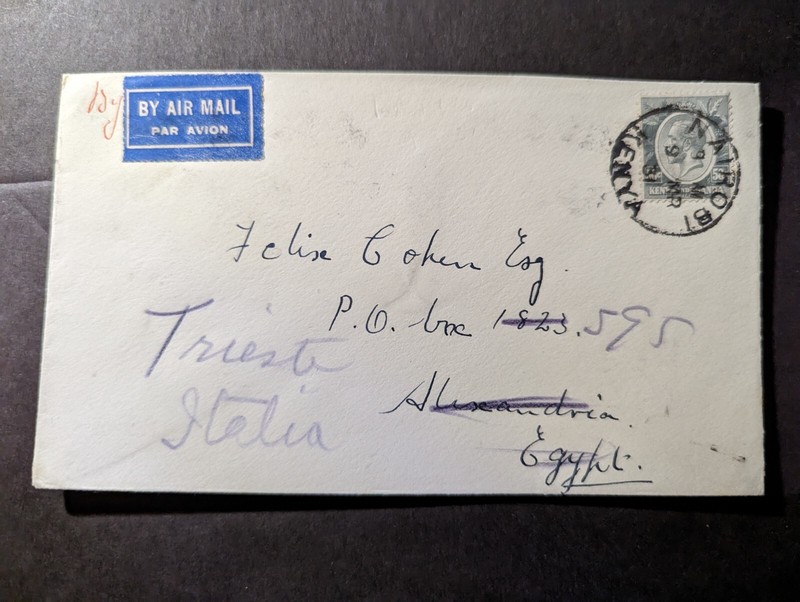 By
BY AIR MAIL
PAR AVION
NAIROBI
KENYA
KENYA
Felix Cohen Esq.
P.O. box 1823. 595
Alexandria.
Egypt.
Trieste
Italia